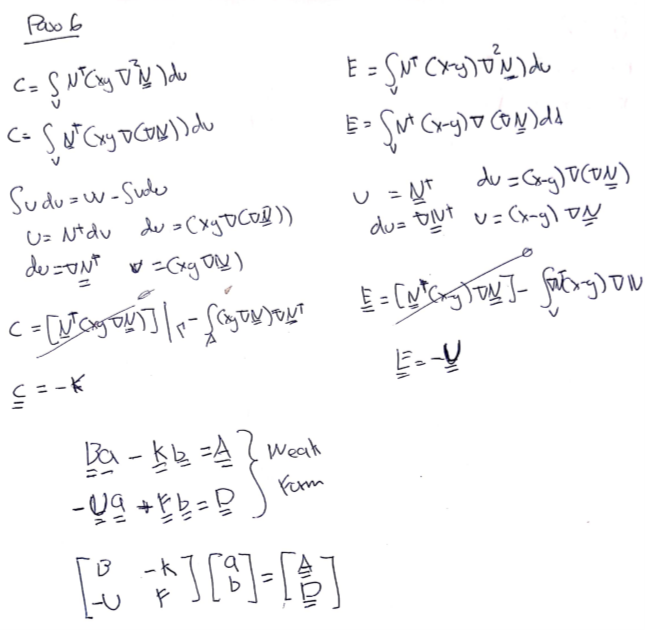 Paso 6
C = ∫_V N^T (xy ∇²N) dv
C = ∫_V N^T (xy ∇(∇N)) dv
∫u dv = uv - ∫v du
U = N^T dv   dv = (xy ∇(∇N))
du = ∇N^T   v = (xy ∇N)
C = [N^T (xy ∇N)] |_Γ - ∫_A (xy ∇N) ∇N^T
C = -K
E = ∫_V N^T (x-y) ∇²N) dv
E = ∫_V N^T (x-y) ∇(∇N) dΛ
U = N^T   dv = (x-y) ∇(∇N)
du = ∇N^T   v = (x-y) ∇N
E = [N^T (x-y) ∇N] - ∫_V ∇N^T (x-y) ∇N
0
E = -U
Ba - Kb = A } Weak
-Ua + Fb = D } Form
[B -K] [a] = [A]
[-U F] [b] [D]